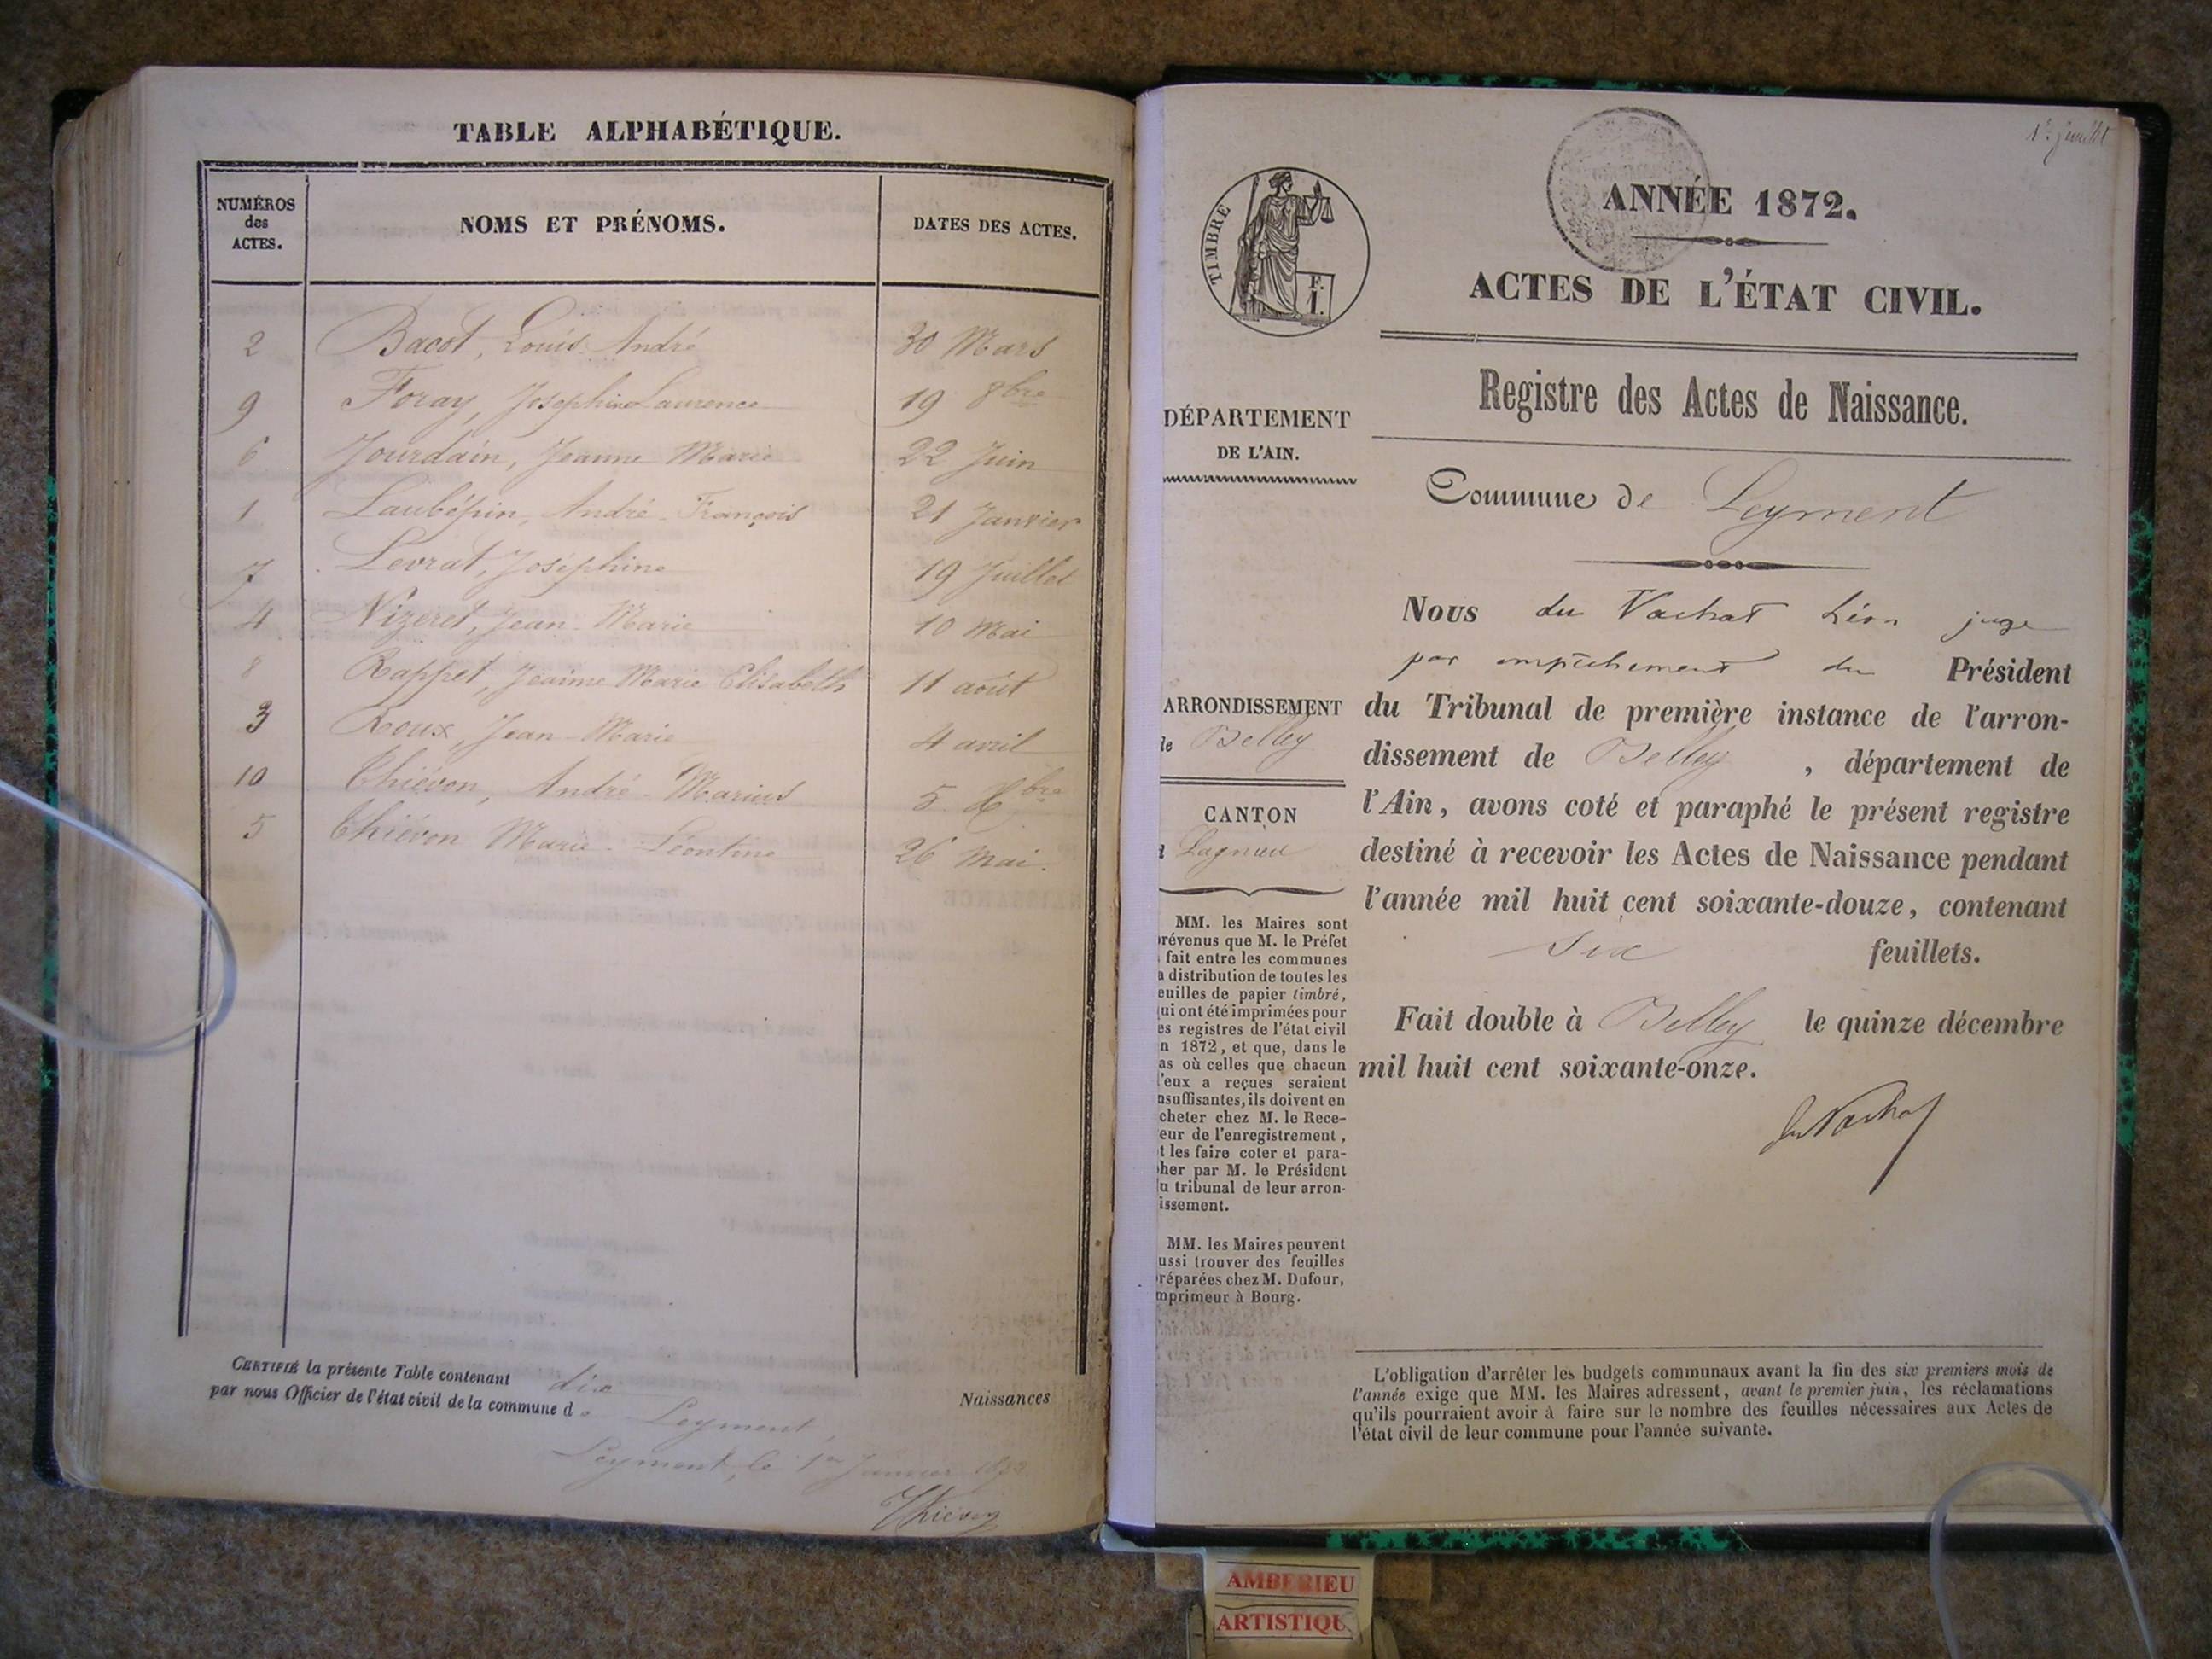 TABLE ALPHABÉTIQUE.
NUMÉROS des ACTES. NOMS ET PRÉNOMS. DATES DES ACTES.
2 Bacot, Louis André 30 Mars
9 Foray, Joséphine Laurence 19 8bre
6 Jourdain, Jeanne Marie 22 Juin
1 Laubépin, André-François 21 Janvier
7 Levrat, Joséphine 19 Juillet
4 Nizeret, Jean-Marie 10 Mai
8 Rappet, Jeanne Marie Elisabeth 11 août
3 Roux, Jean-Marie 4 avril
10 Thiévon, André-Marius 5 Xbre
5 Thiévon Marie-Léontine 26 Mai.
CERTIFIÉ la présente Table contenant dix Naissances
par nous Officier de l'état civil de la commune de Leyment,
Leyment, le 1er Janvier
Thiévon
1er feuillet
TIMBRE
F.
I.
ANNÉE 1872.
ACTES DE L'ÉTAT CIVIL.
Registre des Actes de Naissance.
DÉPARTEMENT
DE L'AIN.
Commune de Leyment
Nous du Vachat Léon juge
par empêchement du Président
du Tribunal de première instance de l'arron-
dissement de Belley, département de
l'Ain, avons coté et paraphé le présent registre
destiné à recevoir les Actes de Naissance pendant
l'année mil huit cent soixante-douze, contenant
six feuillets.
Fait double à Belley le quinze décembre
mil huit cent soixante-onze.
du Vachat
ARRONDISSEMENT
de Belley
CANTON
Lagnieu
MM. les Maires sont
révenus que M. le Préfet
fait entre les communes
a distribution de toutes les
euilles de papier timbré,
ui ont été imprimées pour
es registres de l'état civil
n 1872, et que, dans le
as où celles que chacun
'eux a reçues seraient
nsuffisantes, ils doivent en
cheter chez M. le Rece-
eur de l'enregistrement,
t les faire coter et para-
her par M. le Président
u tribunal de leur arron-
issement.
MM. les Maires peuvent
ussi trouver des feuilles
réparées chez M. Dufour,
mprimeur à Bourg.
L'obligation d'arrêter les budgets communaux avant la fin des six premiers mois de
l'année exige que MM. les Maires adressent, avant le premier juin, les réclamations
qu'ils pourraient avoir à faire sur le nombre des feuilles nécessaires aux Actes de
l'état civil de leur commune pour l'année suivante.
AMBERIEU
ARTISTIQU